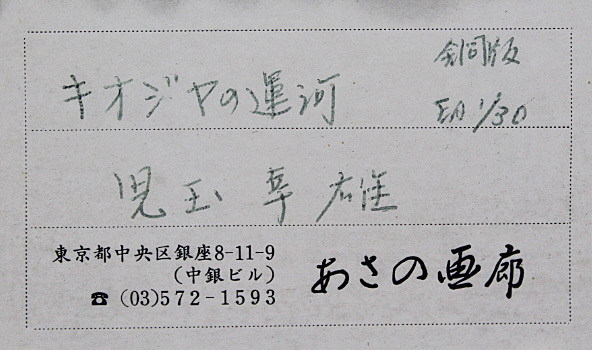 キオジヤの運河
銅版
1/30
児玉幸雄
東京都中央区銀座8-11-9
(中銀ビル)
☎ (03)572-1593
あさの画廊